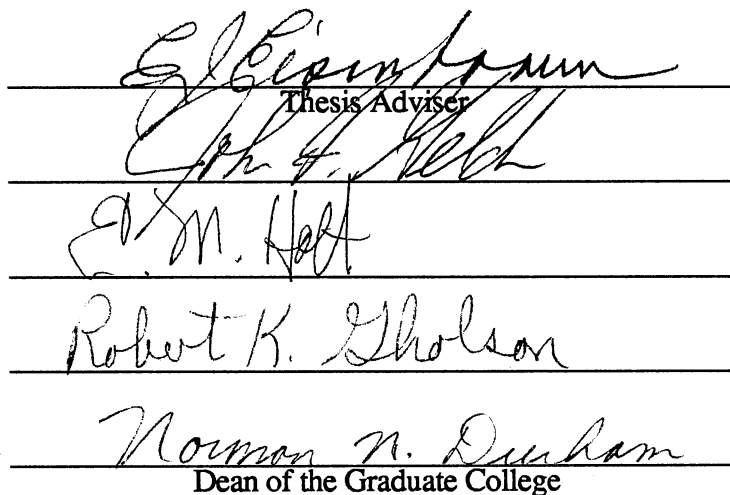 E J Eisenbraun
Thesis Adviser
John H. Gelder
E. M. Holt
Robert K. Gholson
Norman N. Durham
Dean of the Graduate College